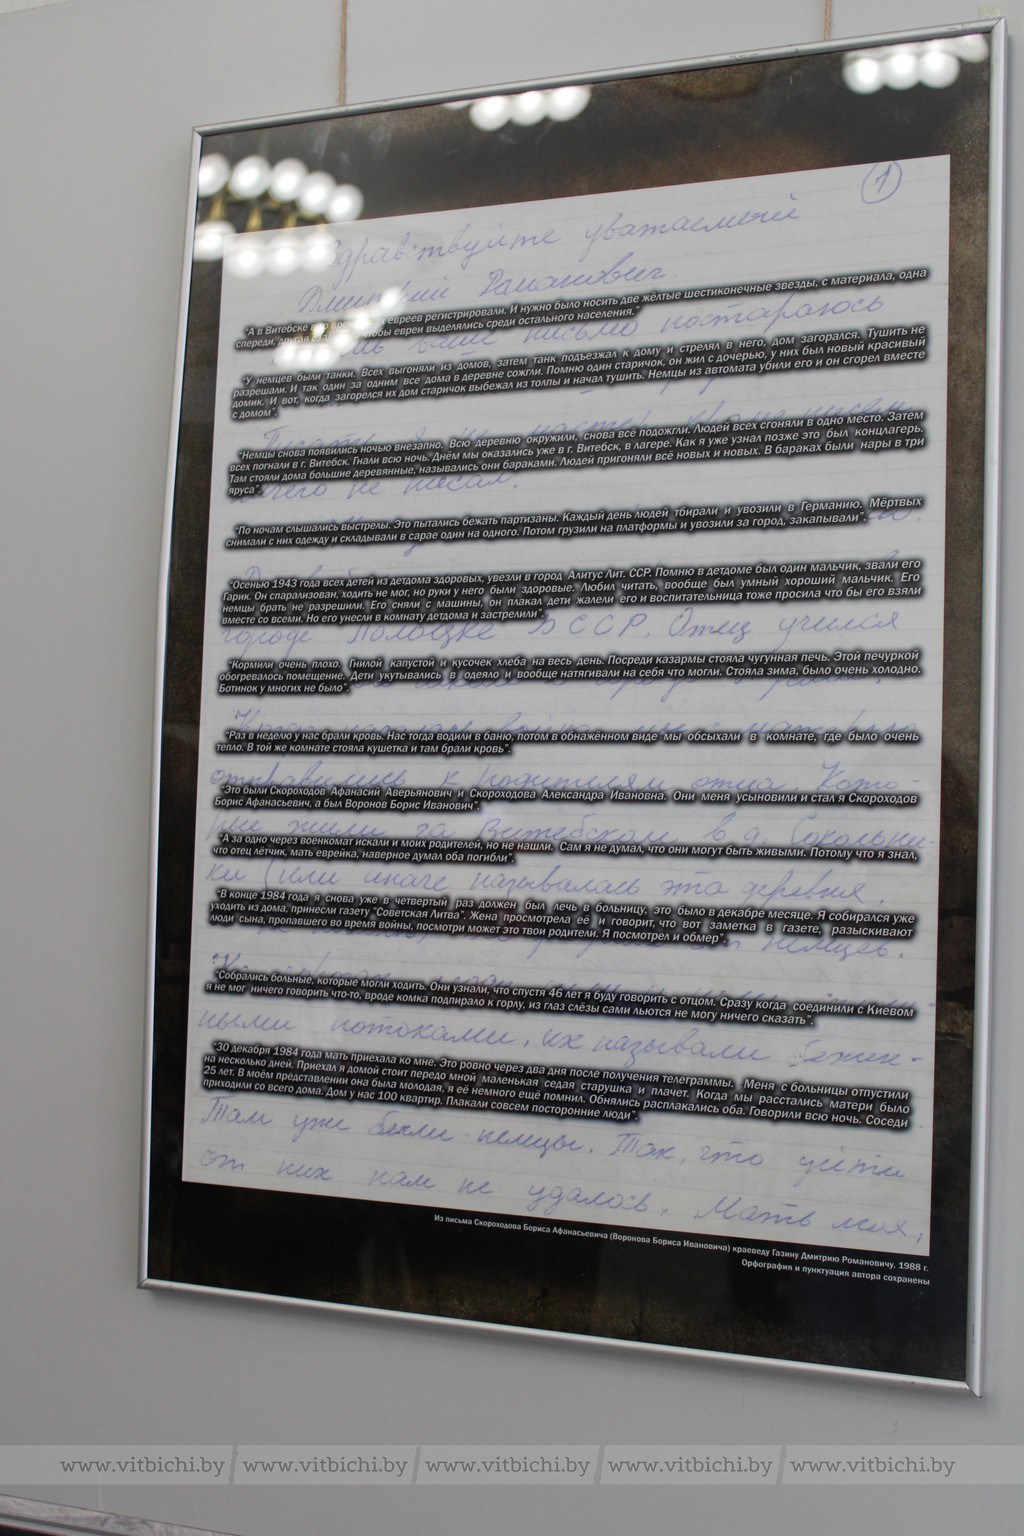 1
Здравствуйте уважаемый
Дмитрий Романович.
"А в Витебске евреев регистрировали. И нужно было носить две жёлтые шестиконечные звезды, с материала, одна
спереди, другая чтобы евреи выделялись среди остального населения."
ваше письмо постараюсь
"У немцев были танки. Всех выгоняли из домов, затем танк подъезжал к дому и стрелял в него, дом загорался. Тушить не
разрешали. И так один за одним все дома в деревне сожгли. Помню один старичок, он жил с дочерью, у них был новый красивый
домик. И вот, когда загорелся их дом старичок выбежал из толпы и начал тушить. Немцы из автомата убили его и он сгорел вместе
с домом".
"Немцы снова появились ночью внезапно. Всю деревню окружили, снова всё подожгли. Людей всех сгоняли в одно место. Затем
всех погнали в г. Витебск. Гнали всю ночь. Днём мы оказались уже в г. Витебск, в лагере. Как я уже узнал позже это был концлагерь.
Там стояли дома большие деревянные, назывались они бараками. Людей пригоняли всё новых и новых. В бараках были нары в три
яруса".
не писал.
"По ночам слышались выстрелы. Это пытались бежать партизаны. Каждый день людей тбирали и увозили в Германию. Мёртвых
снимали с них одежду и складывали в сарае один на одного. Потом грузили на платформы и увозили за город, закапывали".
"Осенью 1943 года всех детей из детдома здоровых, увезли в город Алитус Лит. ССР. Помню в детдоме был один мальчик, звали его
Гарик. Он спарализован, ходить не мог, но руки у него были здоровые. Любил читать, вообще был умный хороший мальчик. Его
немцы брать не разрешили. Его сняли с машины, он плакал дети жалели его и воспитательница тоже просила что бы его взяли
вместе со всеми. Но его унесли в комнату детдома и застрелили".
городе Полоцке БССР. Отец учился
"Кормили очень плохо. Гнилой капустой и кусочек хлеба на весь день. Посреди казармы стояла чугунная печь. Этой печуркой
обогревалось помещение. Дети укутывались в одеяло и вообще натягивали на себя что могли. Стояла зима, было очень холодно.
Ботинок у многих не было".
"Раз в неделю у нас брали кровь. Нас тогда водили в баню, потом в обнажённом виде мы обсыхали в комнате, где было очень
тепло. В той же комнате стояла кушетка и там брали кровь".
отправились к родителям отца. Кото-
"Это были Скороходов Афанасий Аверьянович и Скороходова Александра Ивановна. Они меня усыновили и стал я Скороходов
Борис Афанасьевич, а был Воронов Борис Иванович".
рые жили за Витебском в д. Сокольни-
"А за одно через военкомат искали и моих родителей, но не нашли. Сам я не думал, что они могут быть живыми. Потому что я знал,
что отец лётчик, мать еврейка, наверное думал оба погибли".
ки (или иначе называлась эта деревня.
"В конце 1984 года я снова уже в четвертый раз должен был лечь в больницу, это было в декабре месяце. Я собирался уже
уходить из дома, принесли газету "Советская Литва". Жена просмотрела её и говорит, что вот заметка в газете, разыскивают
люди сына, пропавшего во время войны, посмотри может это твои родители. Я посмотрел и обмер".
немцев.
"Собрались больные, которые могли ходить. Они узнали, что спустя 46 лет я буду говорить с отцом. Сразу когда соединили с Киевом
я не мог ничего говорить что-то, вроде комка подпирало к горлу, из глаз слёзы сами льются не могу ничего сказать".
ными потоками, их называли бежен-
"30 декабря 1984 года мать приехала ко мне. Это ровно через два дня после получения телеграммы. Меня с больницы отпустили
на несколько дней. Приехал я домой стоит передо мной маленькая седая старушка и плачет. Когда мы расстались матери было
25 лет. В моём представлении она была молодая, я её немного ещё помнил. Обнялись расплакались оба. Говорили всю ночь. Соседи
приходили со всего дома. Дом у нас 100 квартир. Плакали совсем посторонние люди".
Там уже были немцы. Так, что уйти
от них нам не удалось. Мать моя,
Из письма Скороходова Бориса Афанасьевича (Воронова Бориса Ивановича) краеведу Газину Дмитрию Романовичу. 1988 г.
Орфография и пунктуация автора сохранены
www.vitbichi.by / www.vitbichi.by / www.vitbichi.by / www.vitbichi.by / www.vitbichi.by